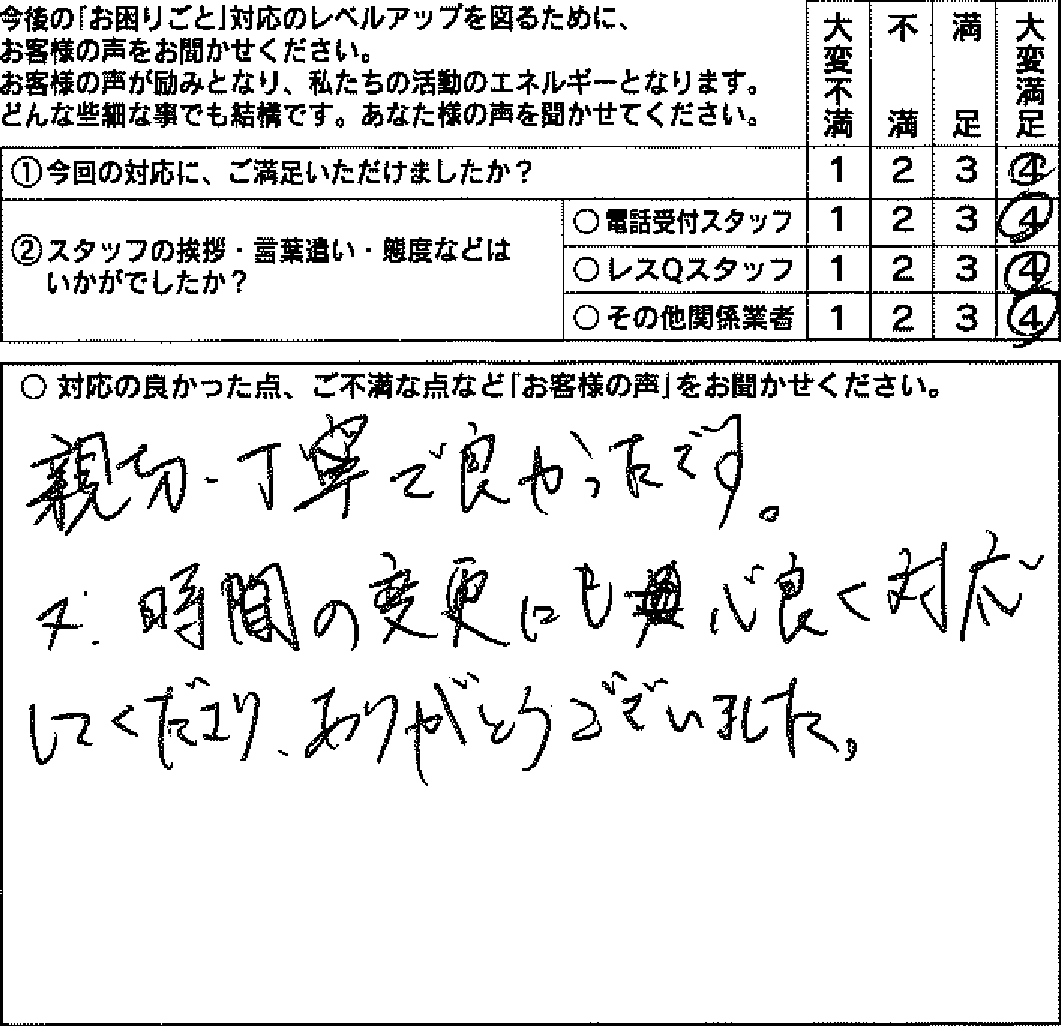 今後の「お困りごと」対応のレベルアップを図るために、
お客様の声をお聞かせください。
お客様の声が励みとなり、私たちの活動のエネルギーとなります。
どんな些細な事でも結構です。あなた様の声を聞かせてください。
大変不満 不満 満足 大変満足
①今回の対応に、ご満足いただけましたか？ 1 2 3 4
②スタッフの挨拶・言葉遣い・態度などは
いかがでしたか？
○電話受付スタッフ 1 2 3 4
○レスQスタッフ 1 2 3 4
○その他関係業者 1 2 3 4
○ 対応の良かった点、ご不満な点など「お客様の声」をお聞かせください。
親切・丁寧で良かったです。
又、時間の変更にも 心良く対応
してくださり、ありがとうございました。